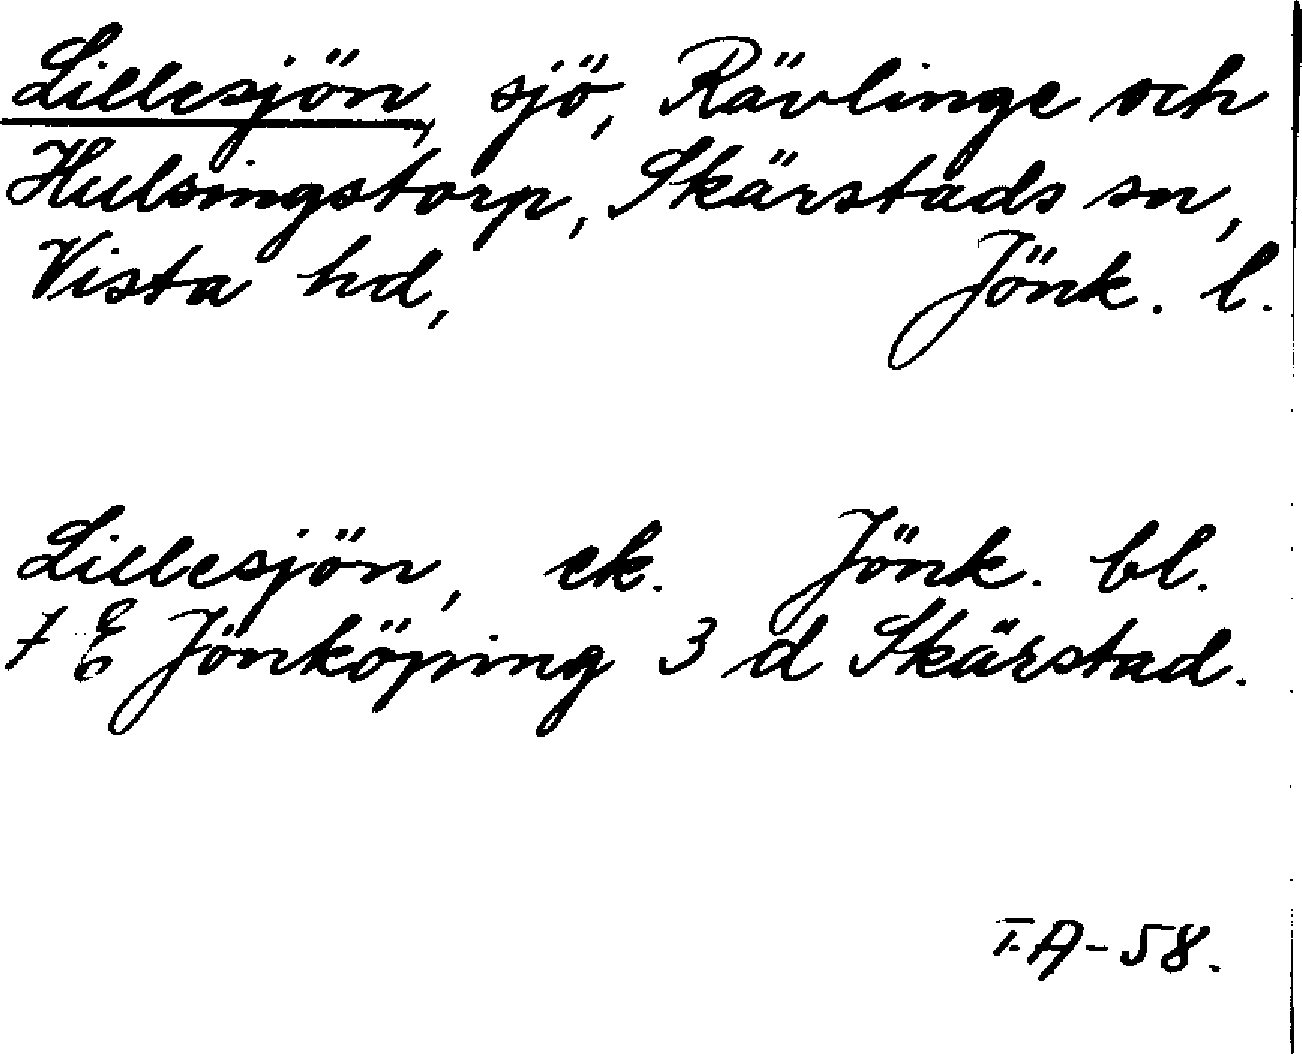 Lillesjön, sjö, Rävlinge och
Hulsingstorp, Skärstads sn,
Vista hd, Jönk. l.
Lillesjön, ek. Jönk. bl.
7 E Jönköping 3 d Skärstad.
I.A-58.